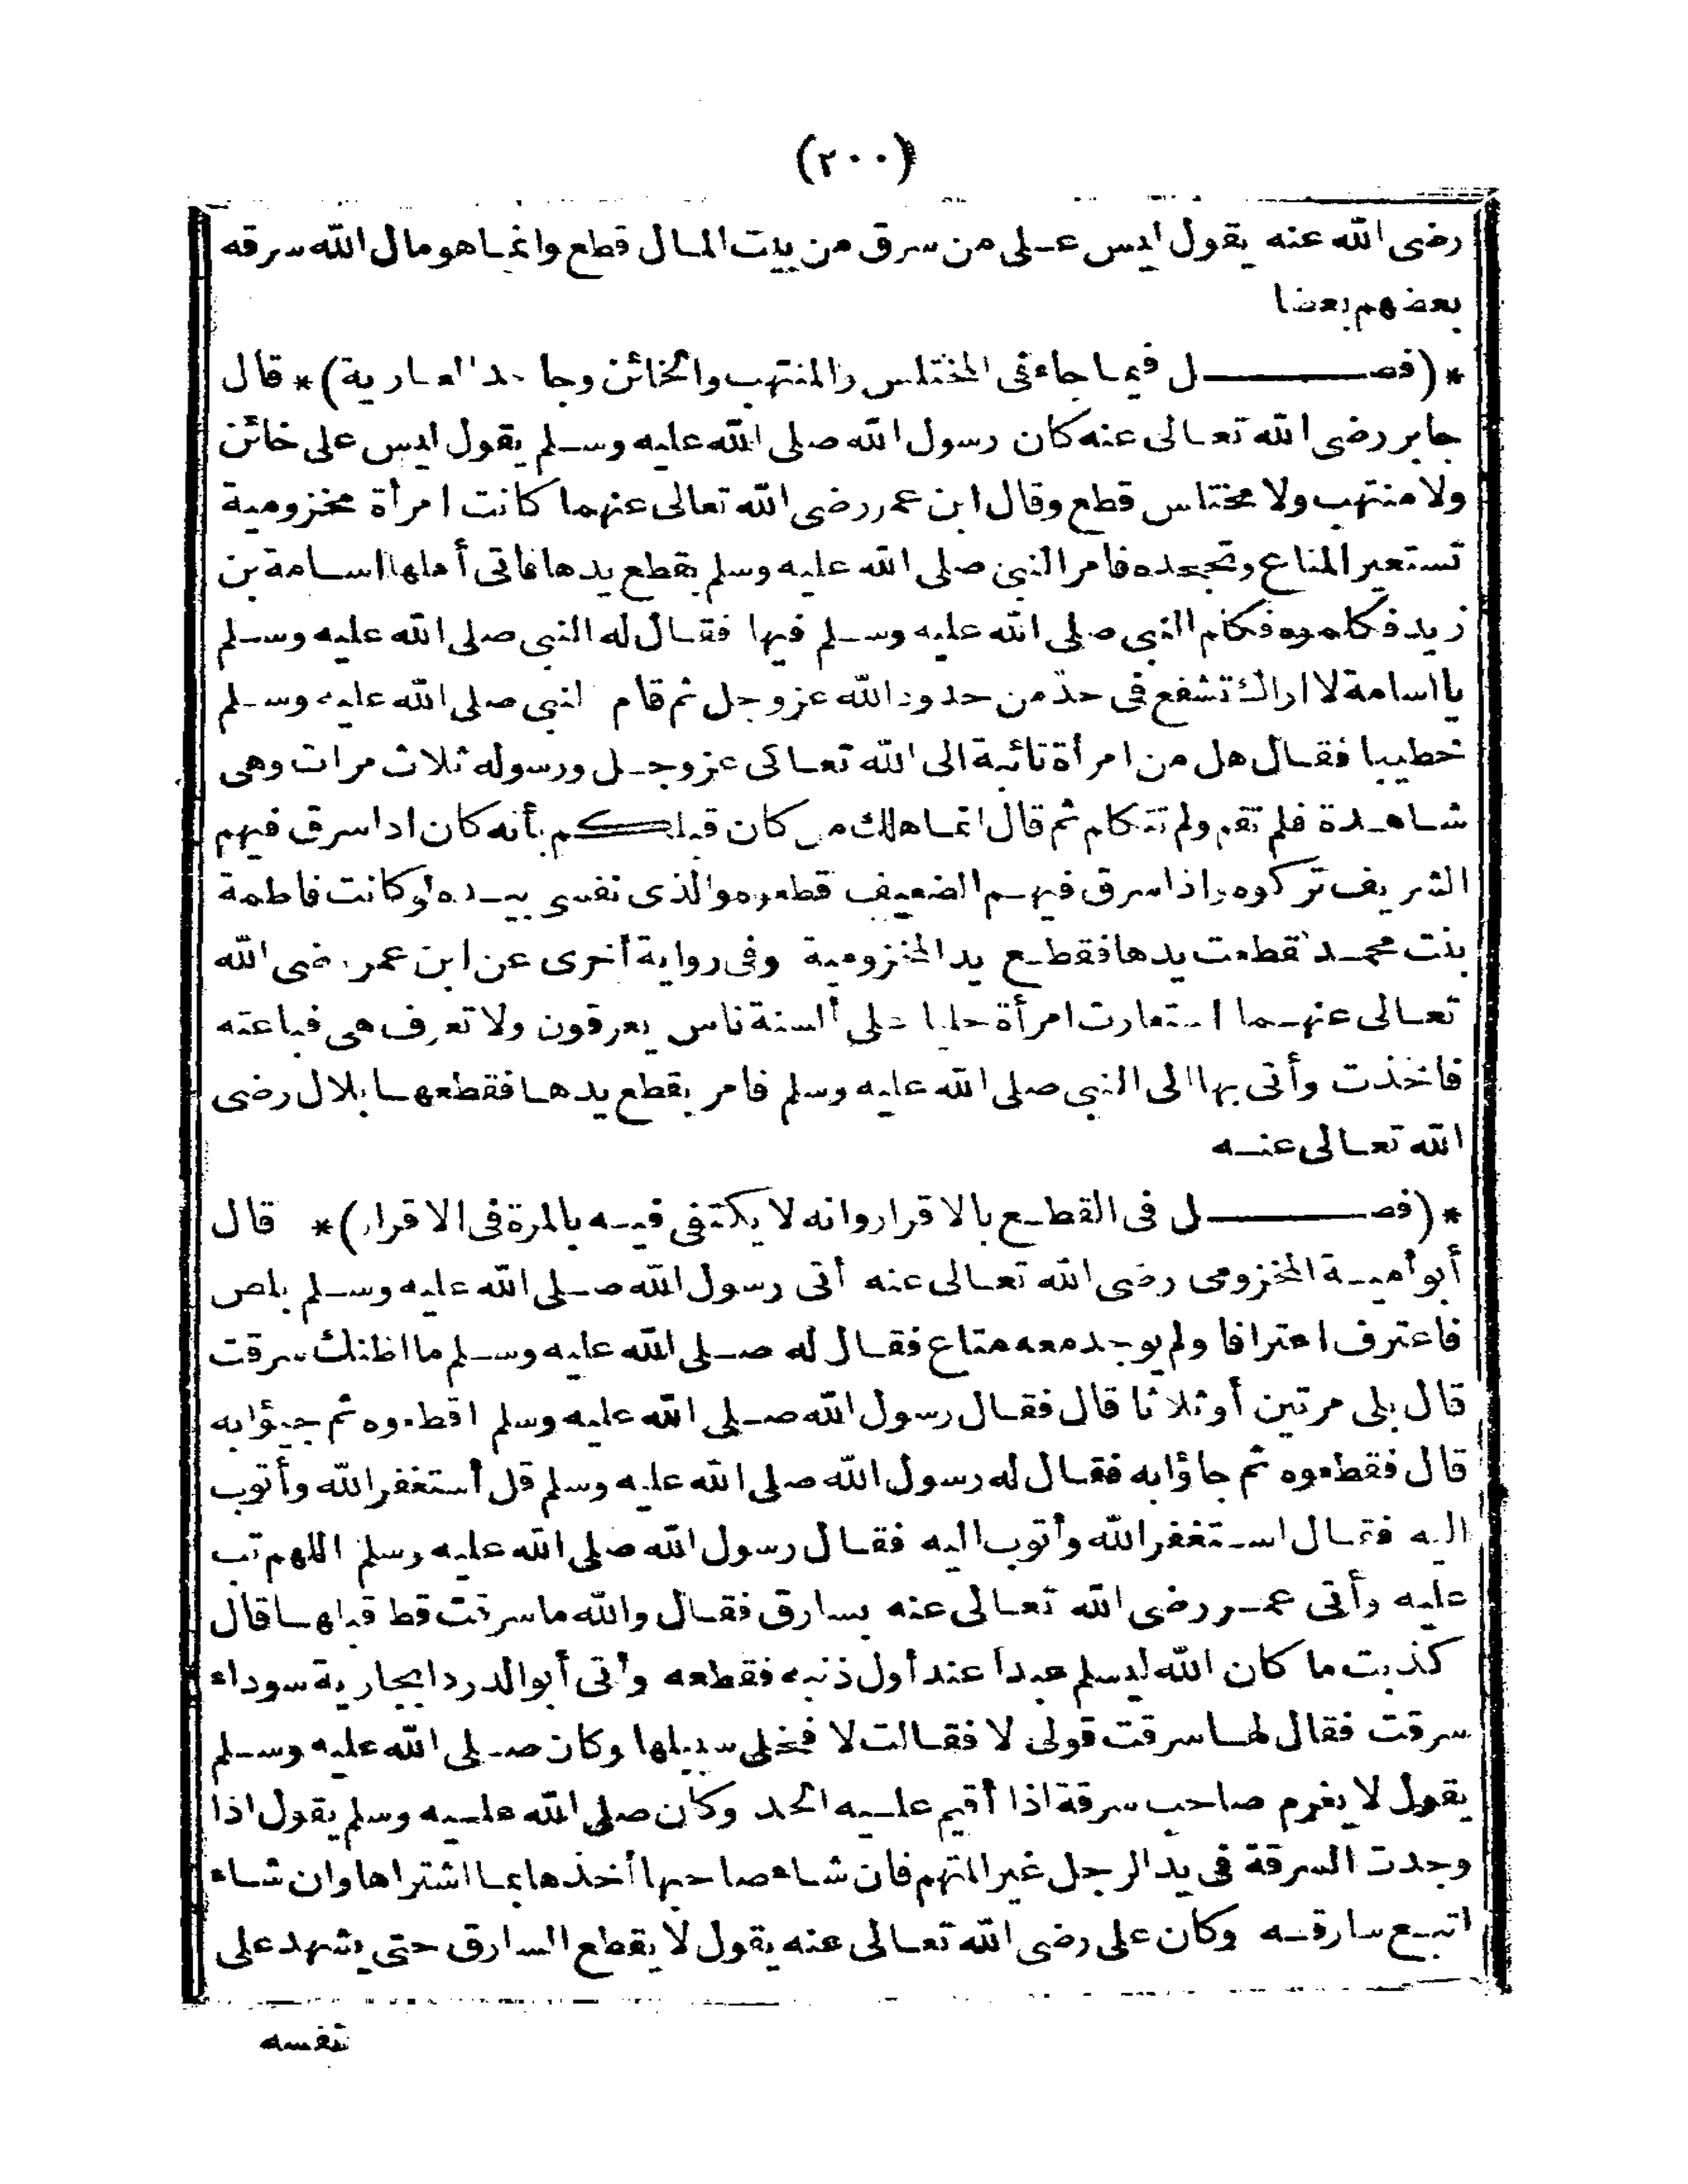 (٢٠٠)
رضى الله عنه يقول ليس على من سرق من بيت المال قطع وانما هو مال الله سرقه
بعضهم بعضا
*(فصل فيما جاء فى المختلس والمنتهب والخائن وجاحد العارية)* قال
جابر رضى الله تعالى عنه كان رسول الله صلى الله عليه وسلم يقول ليس على خائن
ولا منتهب ولا مختلس قطع وقال ابن عمر رضى الله تعالى عنهما كانت امرأة مخزومية
تستعير المتاع وتجحده فامر النبى صلى الله عليه وسلم بقطع يدها فاتى أهلها اسامة بن
زيد فكلموه فكلم النبى صلى الله عليه وسلم فيها فقال له النبى صلى الله عليه وسلم
يا اسامة لا اراك تشفع فى حد من حدود الله عز وجل ثم قام النبى صلى الله عليه وسلم
خطيبا فقال هل من امرأة تائبة الى الله تعالى عز وجل ورسوله ثلاث مرات وهى
شاهدة فلم تقم ولم تتكلم ثم قال انما هلك من كان قبلكم بأنه كان اذا سرق فيهم
الشريف تركوه واذا سرق فيهم الضعيف قطعوه والذى نفسى بيده لو كانت فاطمة
بنت محمد لقطعت يدها فقطع يد المخزومية وفى رواية أخرى عن ابن عمر رضى الله
تعالى عنهما استعارت امرأة حليا على ألسنة ناس يعرفون ولا تعرف هى فباعته
فاخذت وأتى بها الى النبى صلى الله عليه وسلم فامر بقطع يدها فقطعها بلال رضى
الله تعالى عنه
*(فصل فى القطع بالاقرار وانه لا يكتفى فيه بالمرة فى الاقرار)* قال
أبو أمية المخزومى رضى الله تعالى عنه أتى رسول الله صلى الله عليه وسلم بلص
فاعترف اعترافا ولم يوجد معه متاع فقال له صلى الله عليه وسلم ما اظنك سرقت
قال بلى مرتين أو ثلاثا قال فقال رسول الله صلى الله عليه وسلم اقطعوه ثم جيؤا به
قال فقطعوه ثم جاؤا به فقال له رسول الله صلى الله عليه وسلم قل أستغفر الله وأتوب
اليه فقال استغفر الله وأتوب اليه فقال رسول الله صلى الله عليه وسلم اللهم تب
عليه وأتى عمر رضى الله تعالى عنه بسارق فقال والله ما سرقت قط قبلها قال
كذبت ما كان الله ليسلم عبدا عند أول ذنبه فقطعه وأتى أبو الدرداء بجارية سوداء
سرقت فقال لها سرقت قولى لا فقالت لا فخلى سبيلها وكان صلى الله عليه وسلم
يقول لا يغرم صاحب سرقة اذا أقيم عليه الحد وكان صلى الله عليه وسلم يقول اذا
وجدت السرقة فى يد الرجل غير المتهم فان شاء صاحبها أخذها بما اشتراها وان شاء
اتبع سارقه وكان على رضى الله تعالى عنه يقول لا يقطع السارق حتى يشهد على
نفسه